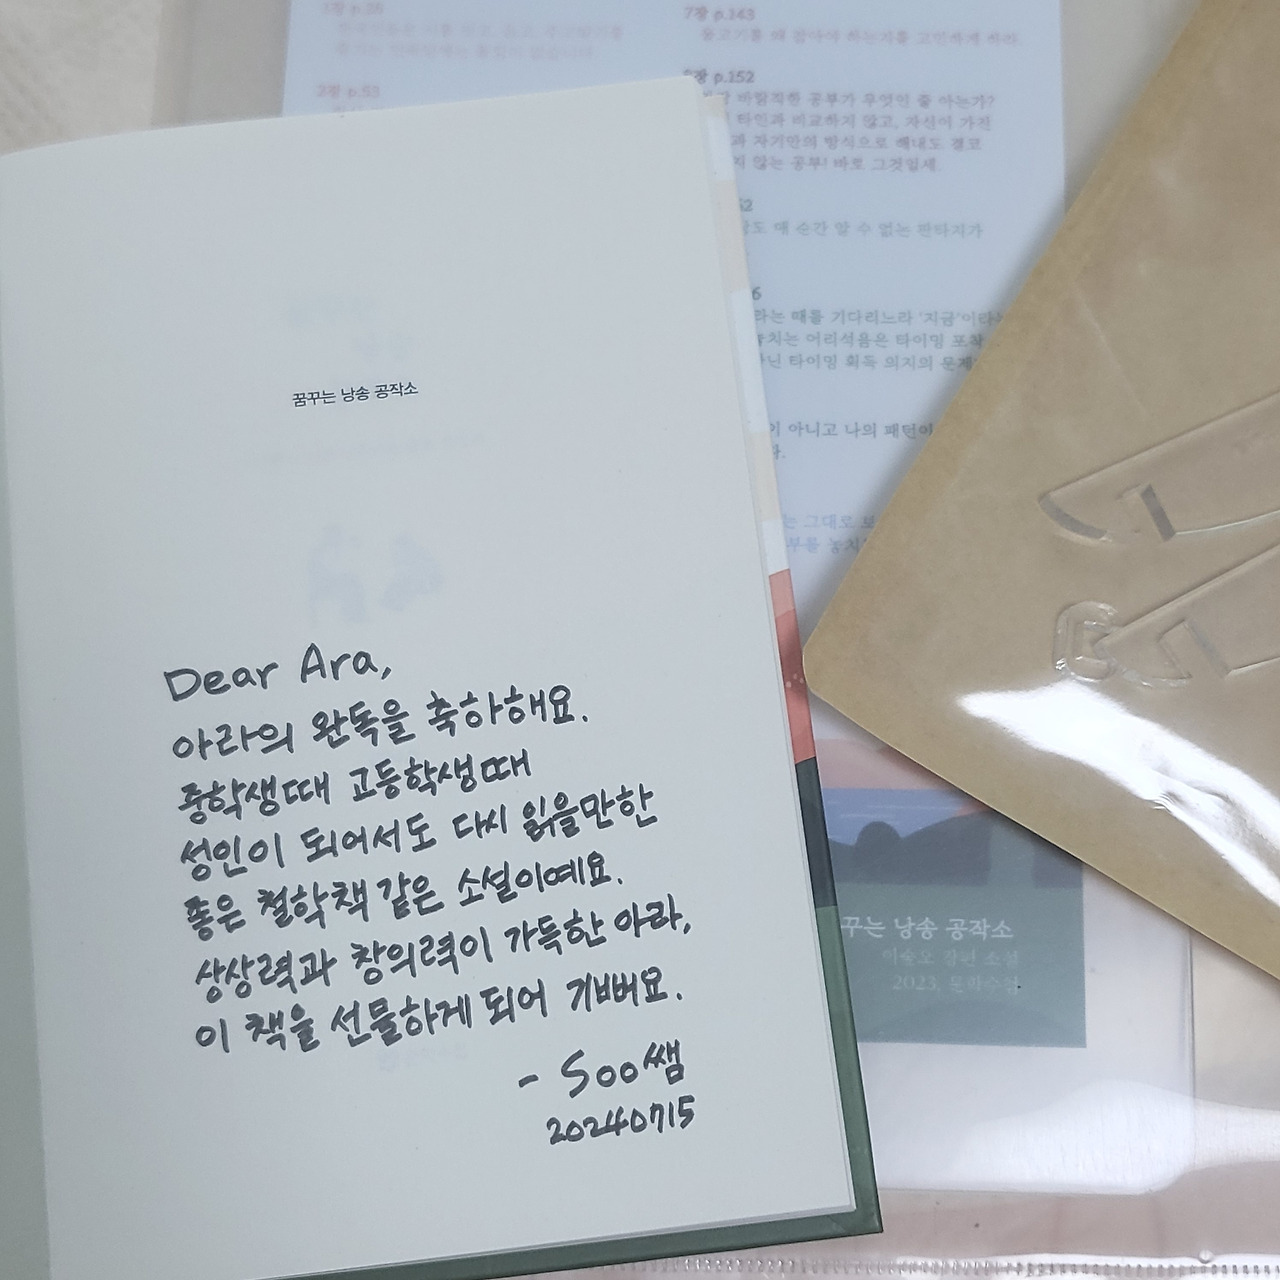 꿈꾸는 낭송 공작소
Dear Ara,
아라의 완독을 축하해요.
중학생때 고등학생때
성인이 되어서도 다시 읽을만한
좋은 철학책 같은 소설이에요.
상상력과 창의력이 가득한 아라,
이 책을 선물하게 되어 기뻐요.
- Soo쌤
20240715
2장 p.53
7장 p.143
물고기를 왜 잡아야 하는지를 고민하게 하라.
p.152
바람직한 공부가 무엇인 줄 아는가?
타인과 비교하지 않고, 자신이 가진
과 자기만의 방식으로 해내도 결코
지 않는 공부! 바로 그것일세.
매 순간 알 수 없는 판타지가
라는 때를 기다리느라 '지금'이라는
놓치는 어리석음은 타이밍 포착
아닌 타이밍 획득 의지의 문제
이 아니고 나의 패턴이
그대로
꾸는 낭송 공작소
이숙오 장편 소설
2023, 문학수첩